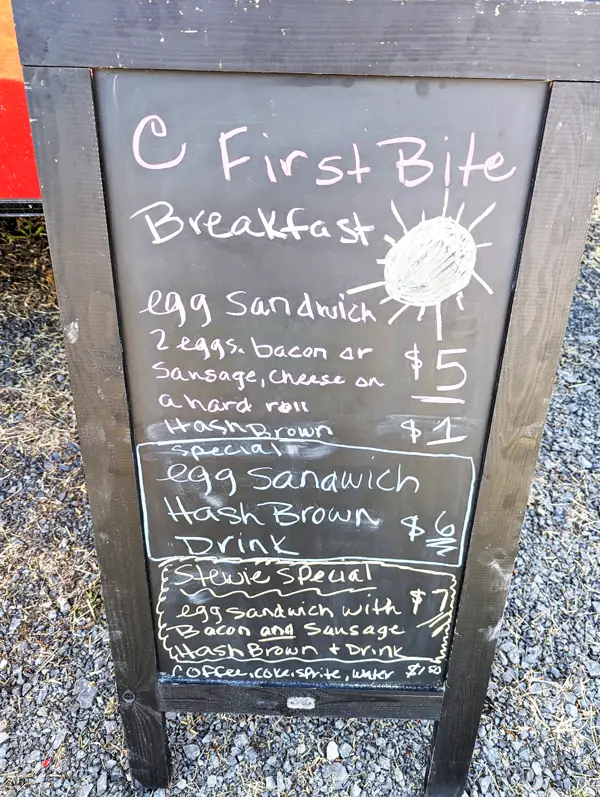 C First Bite
Breakfast
egg sandwich
2 eggs, bacon or
Sausage, cheese on
a hard roll
$5
Hash Brown $1
special
egg sandwich
Hash Brown
Drink
$6
Stewie special
egg sandwich with
Bacon and Sausage
Hash Brown + Drink
$7
Coffee, coke, sprite, water $1.50